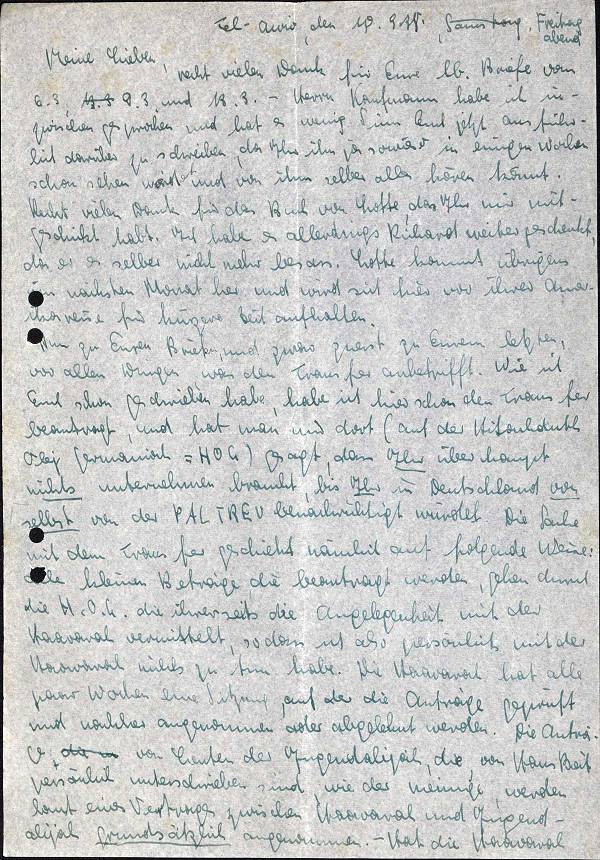 Tel-Aviv, den 18.3.38., Samstag, Freitag
abend
Meine Lieben,
recht vielen Dank für Eure lb. Briefe vom
6.3, 9.3 und 13.3. – Herrn Kaufmann habe ich in-
zwischen gesprochen und hat es wenig Sinn Euch jetzt ausführ-
lich darüber zu schreiben, da Ihr ihn ja sowieso in einigen Wochen
schon sehen werdet und von ihm selber alles hören könnt.
Recht vielen Dank für das Buch von Lotte, das Ihr mir mit-
geschickt habt. Ich habe es allerdings Richard weitergeschenkt,
da er es selber nicht mehr besass. Lotte kommt übrigens
im nächsten Monat her und wird sich hier vor ihrer Ame-
rikareise für kürzere Zeit aufhalten.
Nun zu Euren Briefen, und zwar zuerst zu Eurem letzten,
vor allen Dingen was den Transfer anbetrifft. Wie ich
Euch schon geschrieben habe, habe ich hier schon den Transfer
beantragt, und hat man mir dort (auf der Hitachduth
Olej Germaniah = HOG) gesagt, dass Ihr überhaupt
nichts unternehmen braucht, bis Ihr in Deutschland von
selbst von der PALTREU benachrichtigt würdet. Die Sache
mit dem Transfer geschieht nämlich auf folgende Weise:
Alle kleinen Beträge, die beantragt werden, gehen durch
die H.O.G. die ihrerseits die Angelegenheit mit der
Haavarah vermittelt, sodass ich also persönlich mit der
Haavarah nichts zu tun habe. Die Haavarah hat alle
paar Wochen eine Sitzung, auf der die Anträge geprüft
und nachher angenommen oder abgelehnt werden. Die Anträ-
ge von Leuten der Jugendalijah, die von Hans Beit
persönlich unterschrieben sind, wie der meinige, werden
laut eines Vertrages zwischen Haavarah und Jugend-
alijah grundsätzlich angenommen. – Hat die Haavarah